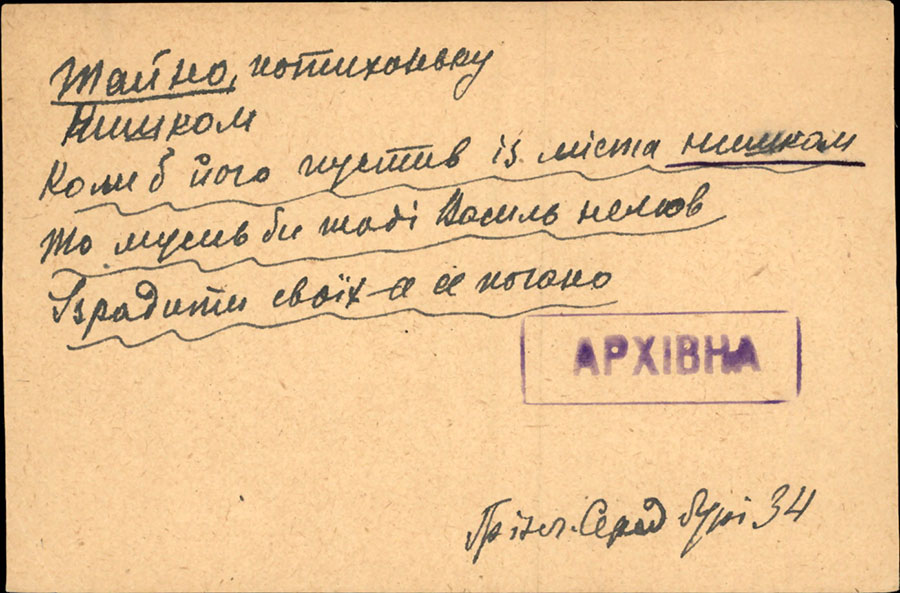 Тайно, потихоньку
Нишком
Коли б його пустив із міста нишком
То мусив би тоді Василь
Ізрадити своїх а це погано
АРХІВНА
Грінч. Серед бурі 34